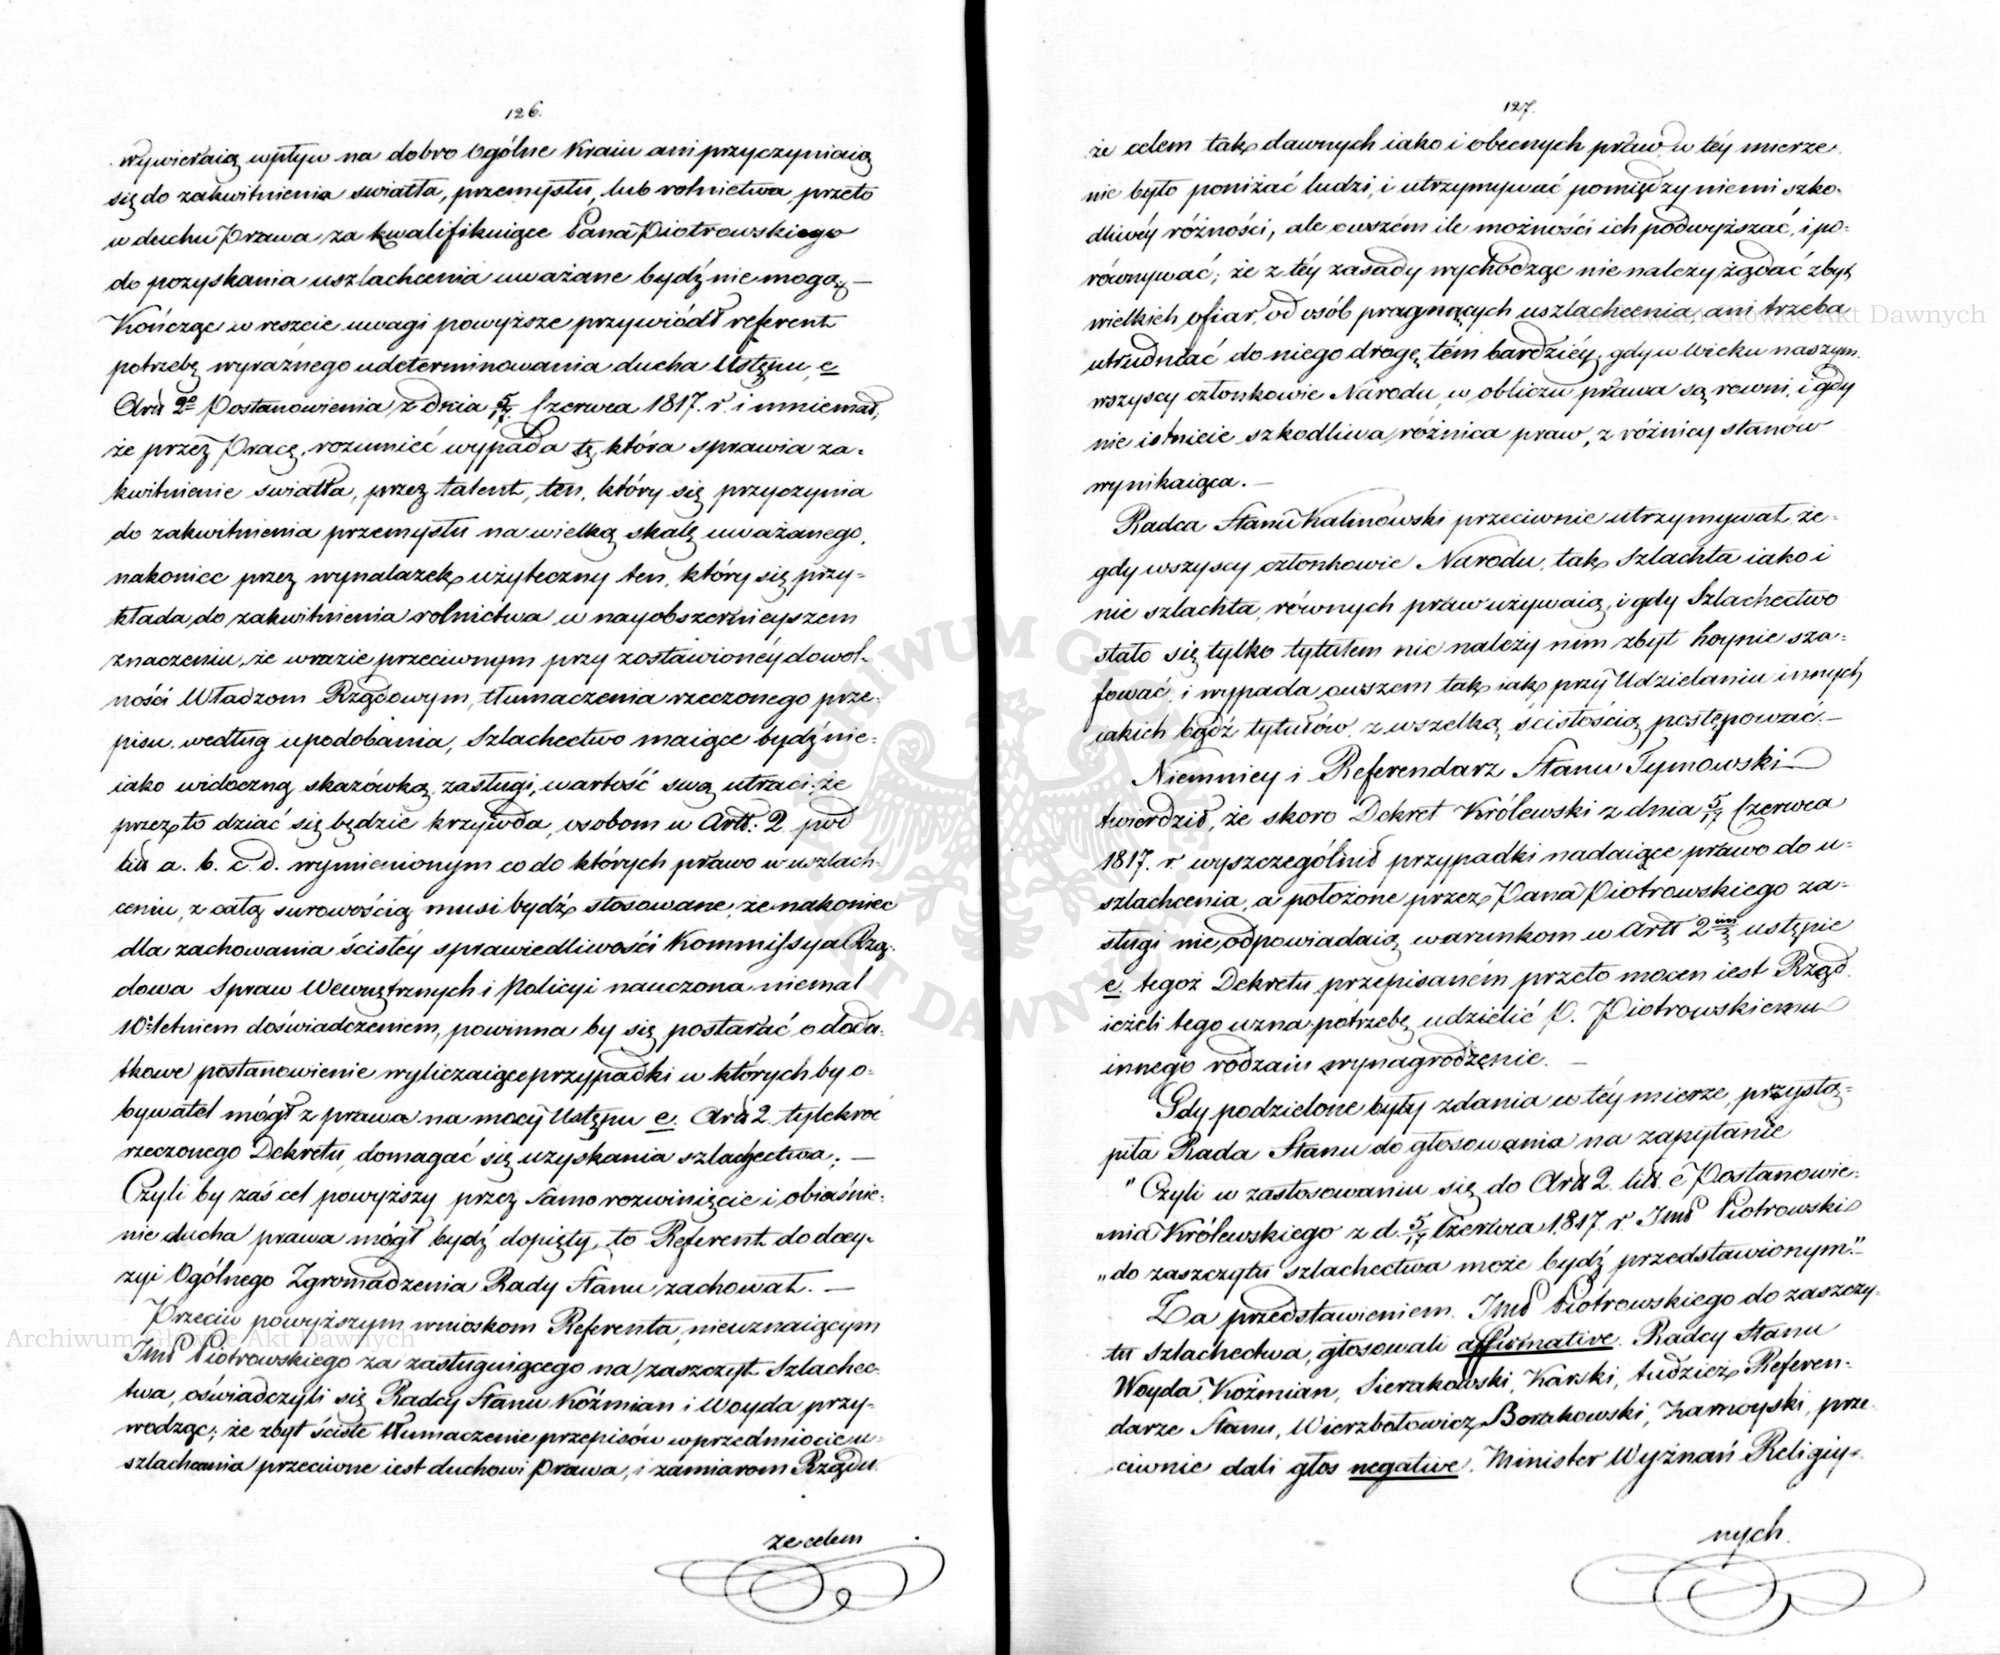 126.
wywieraią wpływ na dobro Ogólne Kraiu ani przyczyniaią
się do zakwitnienia swiatła, przemysłu, lub rolnictwa, przeto
w duchu Prawa za kwalifikuiące Pana Piotrowskiego
do pozyskania uszlachcenia uważane bydź nie mogą; —
Kończąc w reszcie uwagi powyższe przywiódł referent
potrzebę wyraźnego udeterminowania ducha Ustępu e
Artt 2o Postanowienia z dnia 5/17. Czerwca 1817. r. i mniemał,
że przez Pracę, rozumieć wypada tę, która sprawia za-
kwitnienie swiatła, przez talent, ten, który się przyczynia
do zakwitnienia przemysłu na wielką skalę uważanego,
nakoniec przez wynalazek użyteczny ten, który się przy-
kłada do zakwitnienia rolnictwa w nayobszernieyszem
znaczeniu, że w razie przeciwnym przy zostawionéy dowol-
ności Władzom Rządowym, tłumaczenia rzeczonego prze-
pisu według upodobania, Szlachectwo maiące bydź nie-
iako widoczną skazówką zasługi, wartość swą utraci; że
przez to dziać się będzie krzywda, osobom w Artt: 2. pod
litt a. b. c. d. wymienionym co do których prawo w uszlach-
ceniu, z całą surowością musi bydź stosowane, że nakoniec
dla zachowania ścisłéy sprawiedliwości Kommissya Rzą-
dowa Spraw Wewnętrznych i Policyi nauczona niemal
10o letniem doświadczeniem, powinna by się postarać o doda-
tkowe postanowienie wyliczaiące przypadki w których by o-
bywatel mógł z prawa na mocy Ustępu e. Artt 2. tylekroć
rzeczonego Dekretu, domagać się uzyskania szlachectwa; —
Czyli by zaś cel powyższy przez samo rozwinięcie i obiaśnie-
nie ducha prawa mógł bydź dopięty, to Referent do decy-
zyi Ogólnego Zgromadzenia Rady Stanu zachował. —
Przeciw powyższym wnioskom Referenta, nieuznaiącym
Imć Piotrowskiego za zasługuiącego na zaszczyt Szlachec-
twa, oświadczyli się Radcy Stanu Koźmian i Woyda przy-
wodząc; że zbyt ścisłe tłumaczenie przepisów w przedmiocie u-
szlachcenia przeciwne iest duchowi Prawa, i zamiarom Rządu.
że celem
127.
że celem tak dawnych iako i obecnych praw w téy mierze
nie było poniżać ludzi, i utrzymywać pomiędzy niemi szko-
dliwéy różności, ale owszém ile możności ich podwyższać, i po-
równywać; że z téy zasady wychodząc nie należy żądać zbyt
wielkich ofiar, od osób pragnących uszlachcenia, ani trzeba
utrudniać do niego drogę, tém bardziéy, gdy w Wieku naszym
wszyscy członkowie Narodu, w obliczu prawa są rowni, i gdy
nie istnieie szkodliwa różnica praw, z różnicy stanów
wynikaiąca. —
Radca Stanu Kalinowski przeciwnie utrzymywał, że-
gdy wszyscy członkowie Narodu, tak Szlachta iako i
nie szlachta, równych praw używaią, i gdy Szlachectwo
stało się tylko tytułem nie należy nim zbyt hoynie sza-
fować, i wypada owszem tak iak przy Udzielaniu innych
iakich bądź tytułów, z wszelką ścisłością postępować. —
Niemniey i Referendarz Stanu Tymowski
twierdził, że skoro Dekret Królewski z dnia 5/17 Czerwca
1817. r. wyszczególnił przypadki nadaiące prawo do u-
szlachcenia, a położone przez Pana Piotrowskiego za-
sługi nie odpowiadaią warunkom w Artt 2im ustępie
e. tegoż Dekretu przepisaném przeto mocen iest Rząd
ieżeli tego uzna potrzebę udzielić P. Piotrowskiemu
innego rodzaiu wynagrodzenie. —
Gdy podzielone były zdania w téy mierze, przystą-
piła Rada Stanu do głosowania na zapytanie
" Czyli w zastosowaniu się do Artt 2. litt. e Postanowie-
„nia Królewskiego z d. 5/17 Czerwca 1817. r. Imć Piotrowski
„do zaszczytu szlachectwa może bydź przedstawionym." —
Za przedstawieniem Imć Piotrowskiego do zaszczy-
tu Szlachectwa, głosowali affirmative. Radcy Stanu
Woyda, Koźmian, Sierakowski, Karski, tudzież Referen-
darze Stanu, Wierzbołowicz, Borakowski, Zamoyski, prze
ciwnie dali głos negative. Minister Wyznań Religiy-
nych.
Archiwum Główne Akt Dawnych
Archiwum Główne Akt Dawnych
ARCHIWUM GŁÓWNE AKT DAWNYCH